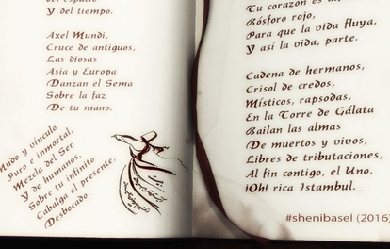 Y del tiempo.
Axel Mundi.
Cruce de antiguos,
Las diosas
Asia y Europa
Danzan el Sema
Sobre la faz
De tu mano.
Nudo y vínculo
Puro e inmortal,
Mezcla del Ser
Y de humanos,
Sobre tu infinito
Cabalga el presente,
Desbocado
Tu corazón es
Bósforo rojo,
Para que la vida fluya,
Y así la vida, parte.
Cadena de hermanos,
Crisol de credos,
Místicos, rapsodas,
En la Torre de Gálata
Bailan las almas
De muertos y vivos,
Libres de tributaciones,
Al fin contigo, el Uno.
¡Oh! rica Istambul.
#shenibasel (2016)